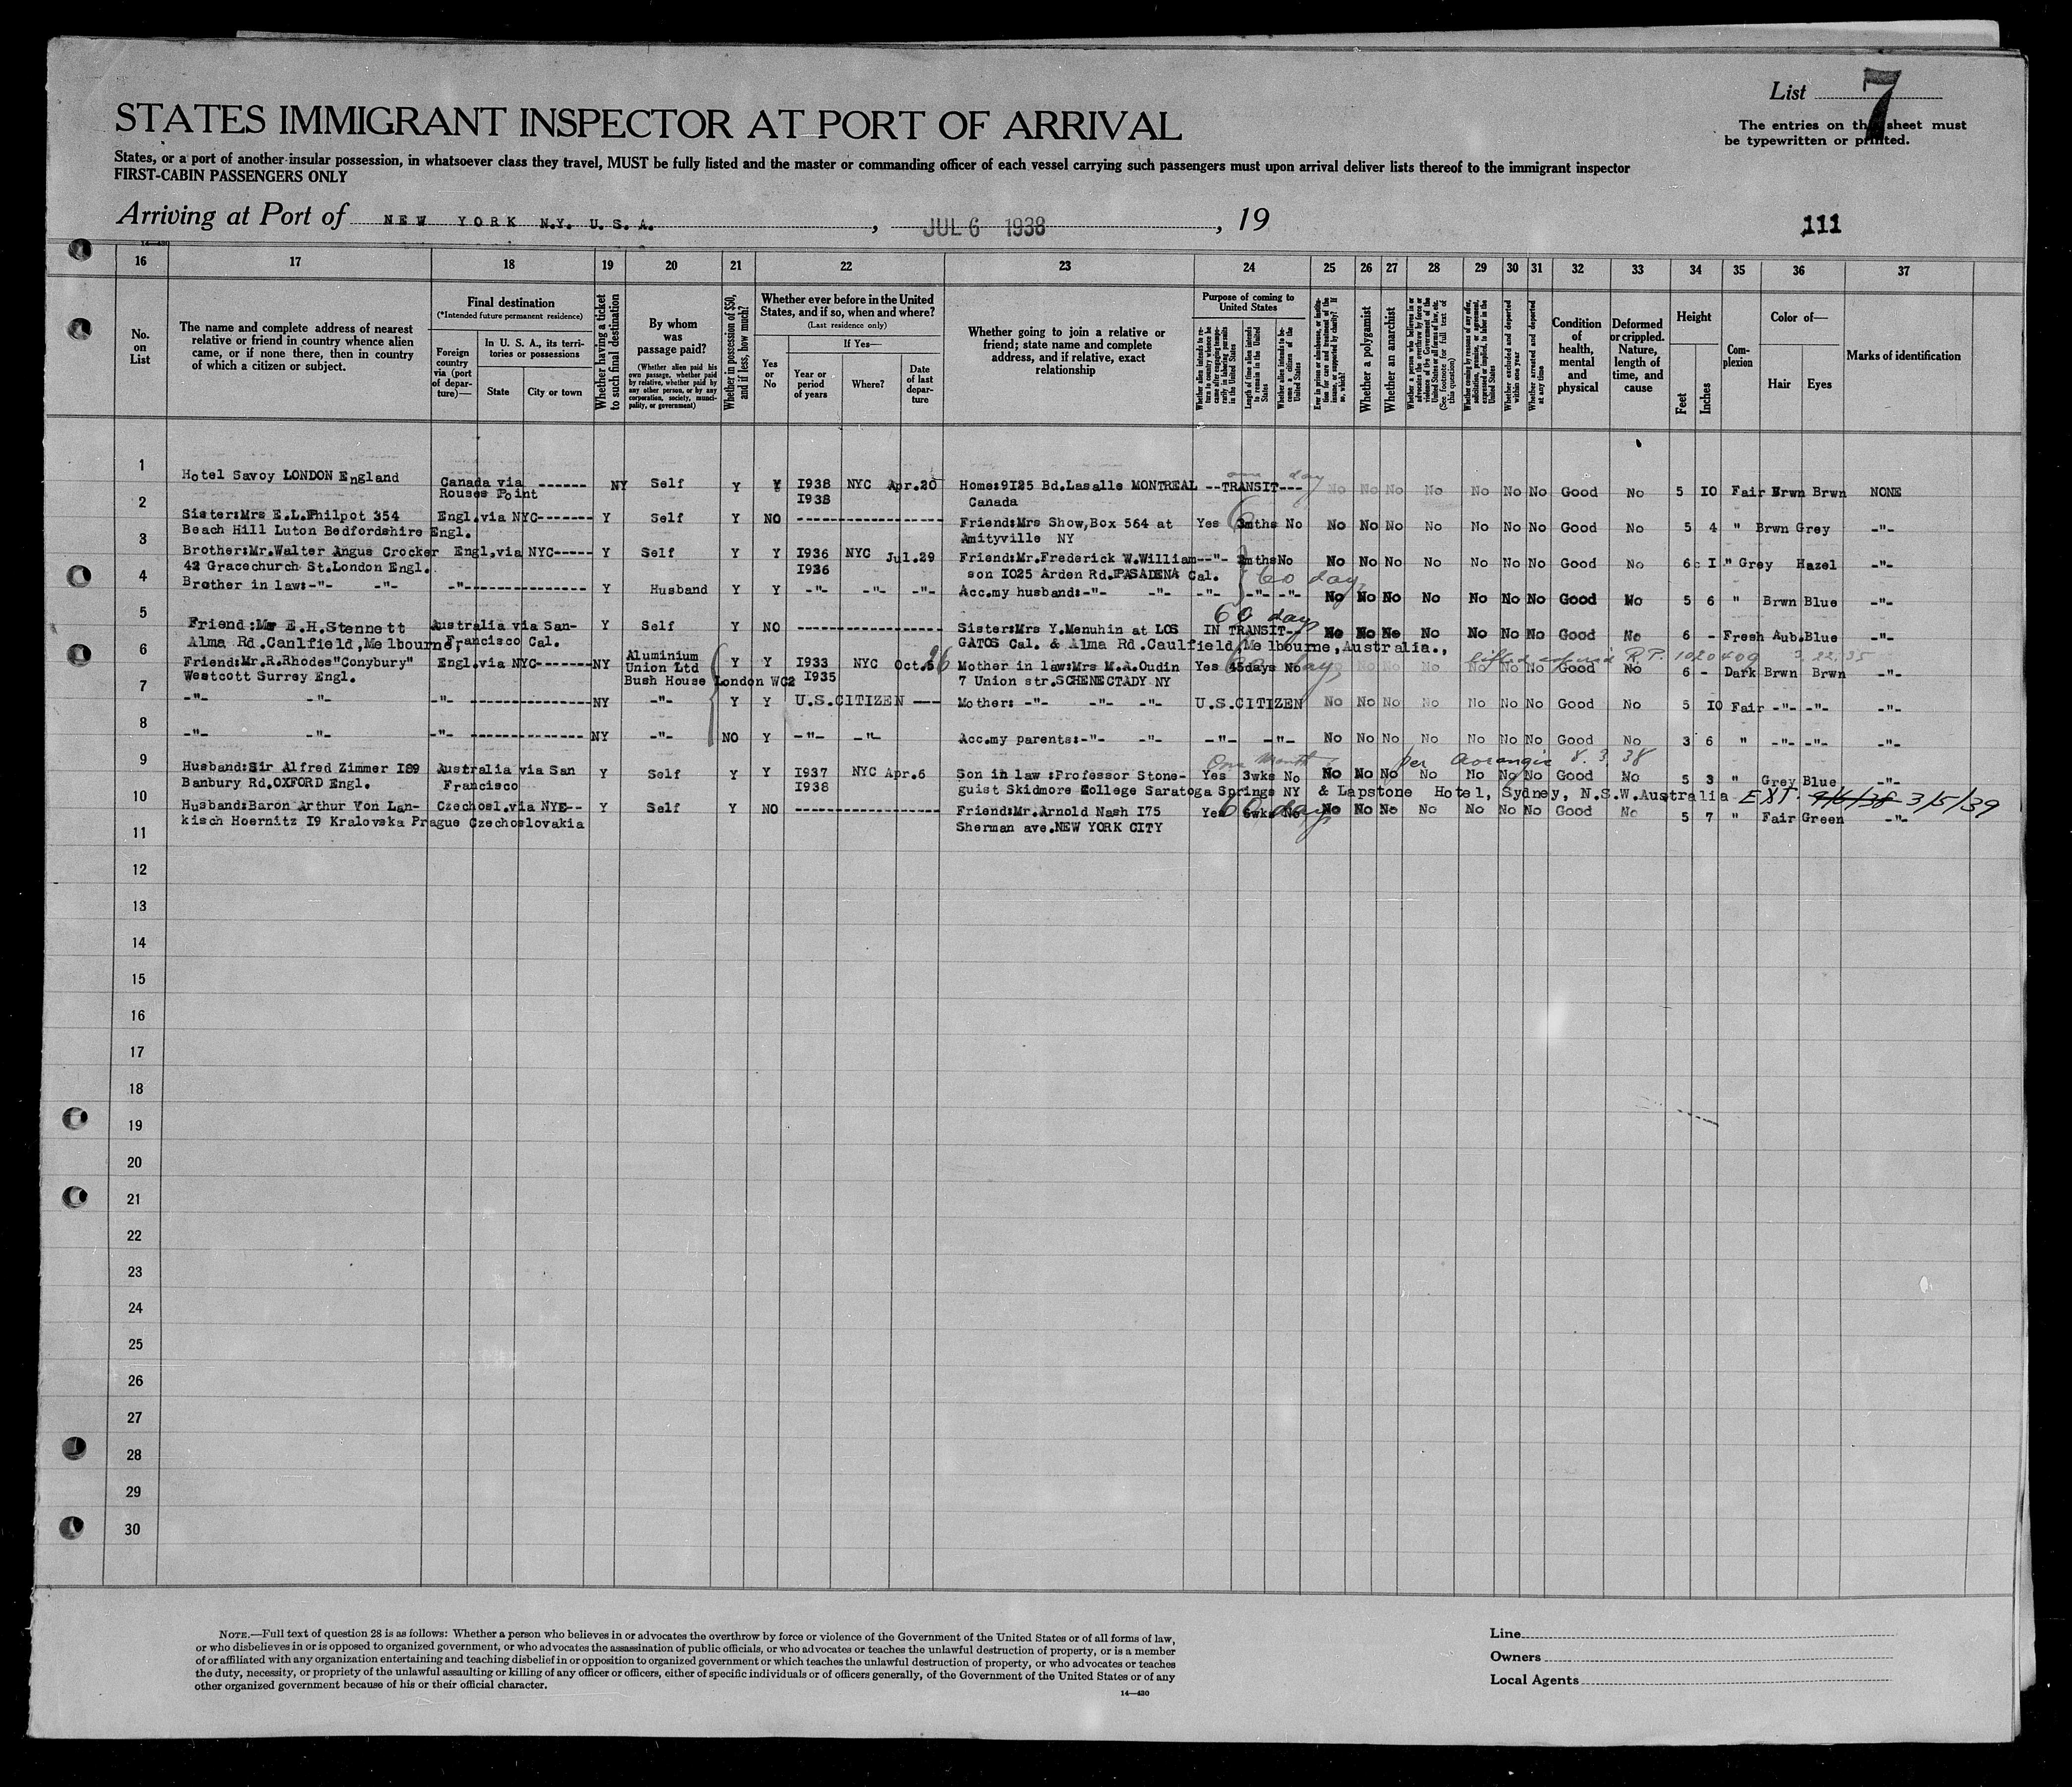 List 7
STATES IMMIGRANT INSPECTOR AT PORT OF ARRIVAL
The entries on this sheet must
be typewritten or printed.
States, or a port of another insular possession, in whatsoever class they travel, MUST be fully listed and the master or commanding officer of each vessel carrying such passengers must upon arrival deliver lists thereof to the immigrant inspector
FIRST-CABIN PASSENGERS ONLY
Arriving at Port of NEW YORK N.Y. U.S.A. , JUL 6 1938 , 19
111
14-430
16 17 18 19 20 21 22 23 24 25 26 27 28 29 30 31 32 33 34 35 36 37
No. on List
The name and complete address of nearest relative or friend in country whence alien came, or if none there, then in country of which a citizen or subject.
Final destination
(*Intended future permanent residence)
Foreign country via (port of departure)—
In U. S. A., its territories or possessions
State
City or town
Whether having a ticket to such final destination
By whom was passage paid?
(Whether alien paid his own passage, whether paid by relative, whether paid by any other person, or by any corporation, society, municipality, or government)
Whether in possession of $50, and if less, how much?
Whether ever before in the United States, and if so, when and where?
(Last residence only)
Yes or No
If Yes—
Year or period of years
Where?
Date of last departure
Whether going to join a relative or friend; state name and complete address, and if relative, exact relationship
Purpose of coming to United States
Whether alien intends to return to country whence he came after engaging temporarily in laboring pursuits in the United States
Length of time alien intends to remain in the United States
Whether alien intends to become a citizen of the United States
Ever in prison or almshouse, or institution for care and treatment of the insane, or supported by charity? If so, which?
Whether a polygamist
Whether an anarchist
(See footnote for full text of this question)
Whether excluded and deported within one year
Whether arrested and deported at any time
Condition of health, mental and physical
Deformed or crippled. Nature, length of time, and cause
Height
Feet
Inches
Complexion
Color of—
Hair
Eyes
Marks of identification
1
Hotel Savoy LONDON England Canada via ------ NY Self Y Y I938 NYC Apr.20 Home:9I25 Bd.Lasalle MONTREAL --TRANSIT--- No No No No No No No Good No 5 IO Fair Brwn Brwn NONE
Rouses Point I938 Canada
one day
2
Sister:Mrs E.L.Philpot 354 Engl.via NYC------- Y Self Y NO ---------------------- Friend:Mrs Show,Box 564 at Yes 3mths No No No No No No No No Good No 5 4 " Brwn Grey -"-
Beach Hill Luton Bedfordshire Engl. Amityville NY
3
Brother:Mr.Walter Angus Crocker Engl.via NYC----- Y Self Y Y I936 NYC Jul.29 Friend:Mr.Frederick W.William--"- 3mths No No No No No No No No Good No 6 I " Grey Hazel -"-
42 Gracechurch St.London Engl. I936 son IO25 Arden Rd.PASADENA Cal.
60 day
4
Brother in law:-"- -"- -"---------------- Y Husband Y Y -"- -"- -"- Acc.my husband:-"- -"- -"- -"- -"- No No No No No No No Good No 5 6 " Brwn Blue -"-
60 day
5
Friend:Mr E.H.Stennett Australia via San- Y Self Y NO ---------------------- Sister:Mrs Y.Menuhin at LOS IN TRANSIT-- No No No No No No No Good No 6 - Fresh Aub.Blue -"-
Alma Rd.Canlfield,Melbourne, Francisco Cal. GATOS Cal. & Alma Rd.Caulfield,Melbourne,Australia.,
R.P. 1020409 3.22.35
6
Friend:Mr.R.Rhodes"Conybury" Engl.via NYC-------NY Aluminium Union Ltd Y Y I933 NYC Oct. 26 Mother in law:Mrs M.A.Oudin Yes 45days No No No No No No No No Good No 6 - Dark Brwn Brwn -"-
Westcott Surrey Engl. Bush House London WC2 I935 7 Union str.SCHENECTADY NY
7
-"- -"- -"- ----------------NY -"- Y Y U.S.CITIZEN ---- Mother: -"- -"- -"- U.S.CITIZEN No No No No No No No Good No 5 IO Fair -"- -"- -"-
8
-"- -"- -"- ----------------NY -"- NO Y -"- -"- Acc.my parents:-"- -"- -"- -"- No No No No No No No Good No 3 6 " -"- -"- -"-
One Month per Aorangie 8. 3. 38
9
Husband:Sir Alfred Zimmer I89 Australia via San Y Self Y Y I937 NYC Apr.6 Son in law :Professor Stone- Yes 3wks No No No No No No No No Good No 5 3 " Grey Blue -"-
Banbury Rd.OXFORD Engl. Francisco I938 guist Skidmore College Saratoga Springs NY & Lapstone Hotel, Sydney, N.S.W.Australia EXT. 9/6/38 3/5/39
10
Husband:Baron Arthur Von Lan- Czechosl.via NYE-- Y Self Y NO ---------------------- Friend:Mr.Arnold Nash I75 Yes 6wks No No No No No No No No Good No 5 7 " Fair Green -"-
kisch Hoernitz I9 Kralovska Prague Czechoslovakia Sherman ave.NEW YORK CITY
60 day
11
12
13
14
15
16
17
18
19
20
21
22
23
24
25
26
27
28
29
30
NOTE.—Full text of question 28 is as follows: Whether a person who believes in or advocates the overthrow by force or violence of the Government of the United States or of all forms of law,
or who disbelieves in or is opposed to organized government, or who advocates the assassination of public officials, or who advocates or teaches the unlawful destruction of property, or is a member
of or affiliated with any organization entertaining and teaching disbelief in or opposition to organized government or which teaches the unlawful destruction of property, or who advocates or teaches
the duty, necessity, or propriety of the unlawful assaulting or killing of any officer or officers, either of specific individuals or of officers generally, of the Government of the United States or of any
other organized government because of his or their official character.
14—430
Line
Owners
Local Agents